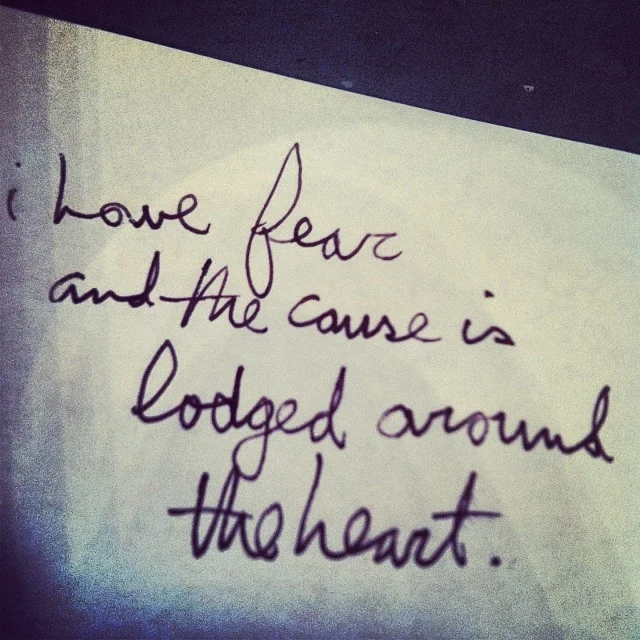 i have fear
and the cause is
lodged around
the heart.